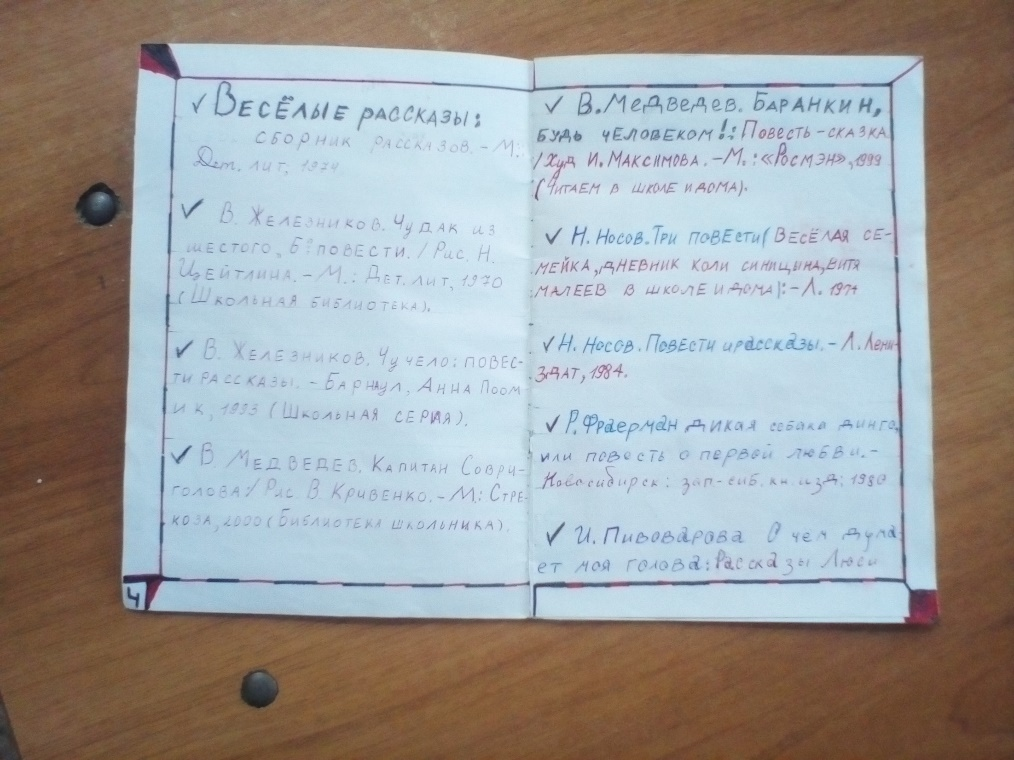 ✓ Весёлые рассказы:
сборник рассказов. – М.:
Дет. лит, 1974
✓ В. Железников. Чудак из
шестого, Б: повести. / Рис. Н.
Цейтлина. – М.: Дет. лит, 1970
(Школьная библиотека).
✓ В. Железников. Чучело: повес-
ти рассказы. – Барнаул, Анна Поом
ик, 1993 (Школьная серия).
✓ В. Медведев. Капитан Соври-
голова: / Рис. В. Кривенко. – М: Стре-
коза, 2000 (Библиотека школьника).
4
✓ В. Медведев. Баранкин,
будь человеком!: Повесть-сказка
/ Худ И. Максимова. – М.: «Росмэн», 1999
(Читаем в школе и дома).
✓ Н. Носов. Три повести (Весёлая се-
мейка, дневник Коли Синицина, Витя
Малеев в школе и дома): – Л. 1977
✓ Н. Носов. Повести и рассказы. – Л. Лени-
здат, 1984.
✓ Р. Фраерман дикая собака динго,
или повесть о первой любви. –
Новосибирск: зап-сиб. кн. изд: 1980
✓ И. Пивоварова О чем дума
ет моя голова: Рассказы Люси